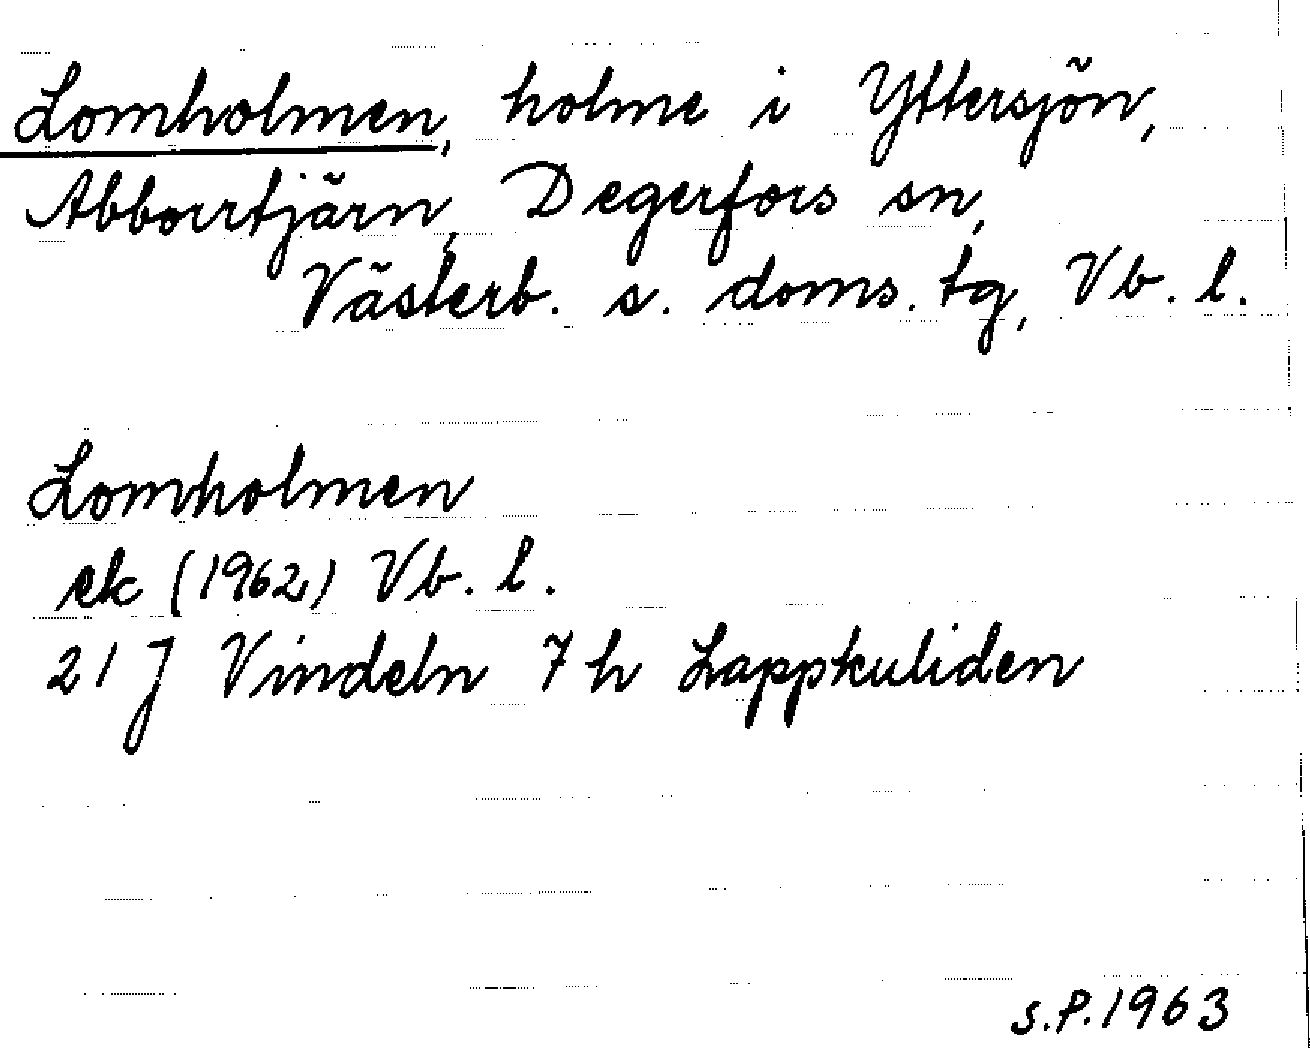 Lomholmen, holme i Yttersjön,
Abborrtjärn, Degerfors sn,
Västerb. s. doms. tg, Vb. l.
Lomholmen
ek (1962) Vb. l.
21 J Vindeln 7 h Lappkuliden
S.P. 1963